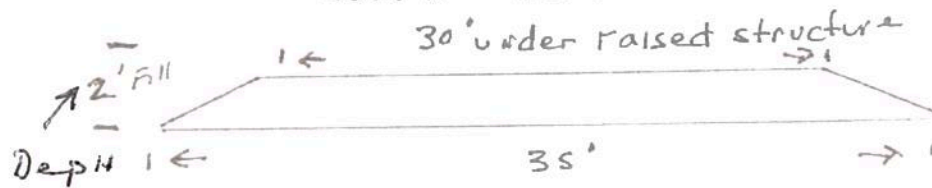 30' under raised structure
2' Fill
35'
Depth